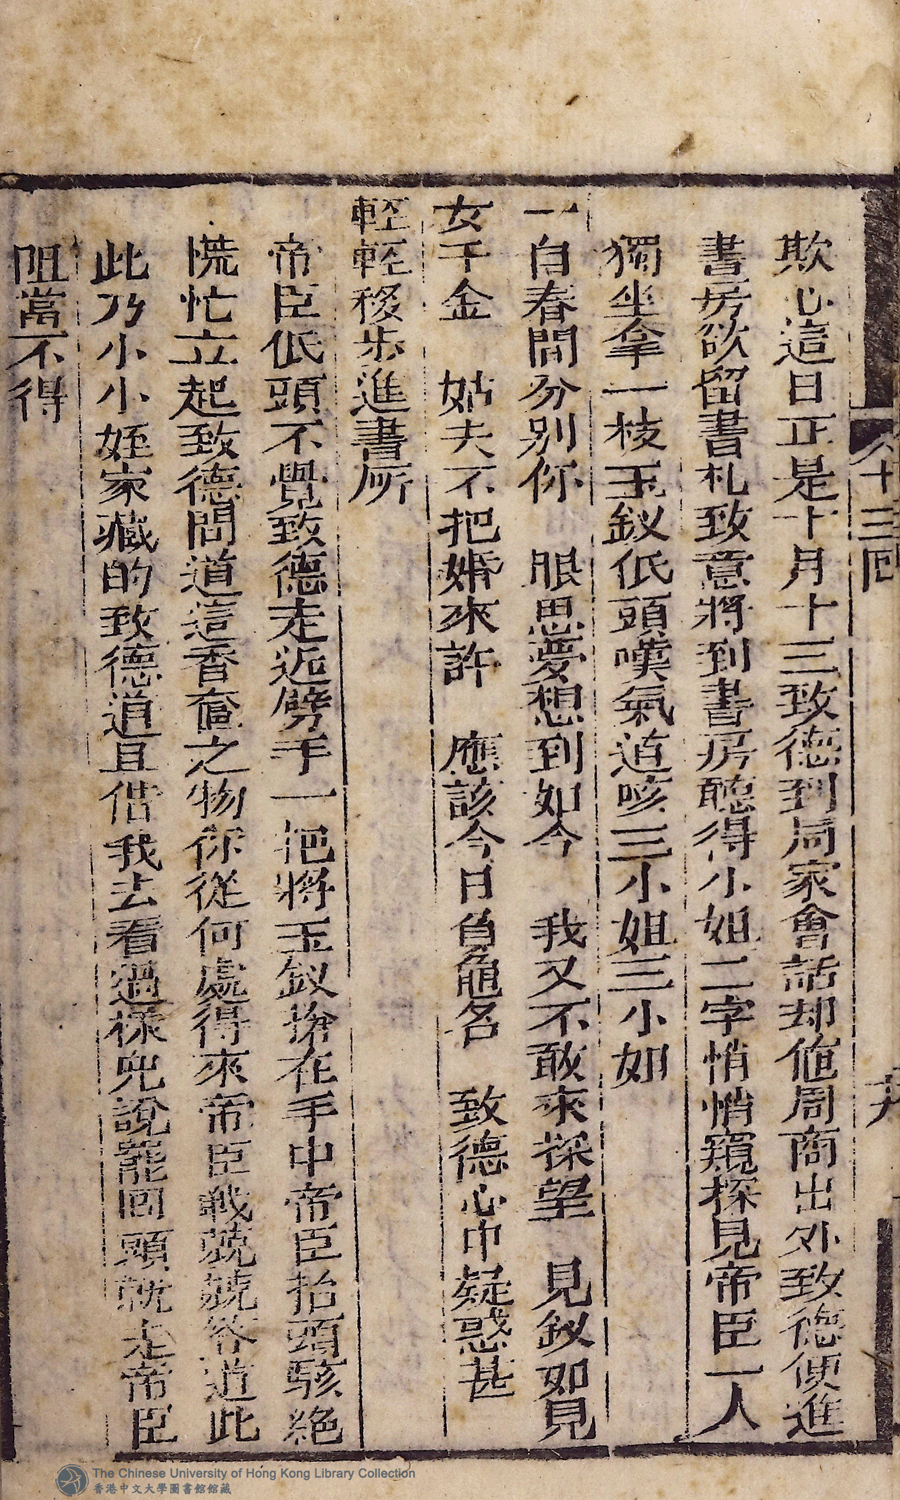 十三回
欺心這日正是十月十三致德到周家會話却值周商出外致德便進
書房欲留書札致意將到書房聽得小姐二字悄悄窺探見帝臣一人
獨坐拿一枝玉釵低頭嘆氣道咳三小姐三小姐
一自春間分别你　眠思夢想到如今　我又不敢來探望　見釵如見
女千金　姑夫不把婚來許　應該今日負龜名　致德心中疑惑甚
輕輕移步進書房
帝臣低頭不覺致德走近劈手一把將玉釵搶在手中帝臣抬頭駭絶
慌忙立起致德問道這香奩之物你從何處得來帝臣戰兢兢答道此
此乃小小姪家藏的致德道且借我去看過樣兒說罷回頭就走帝臣
阻當不得
The Chinese University of Hong Kong Library Collection
香港中文大學圖書館館藏